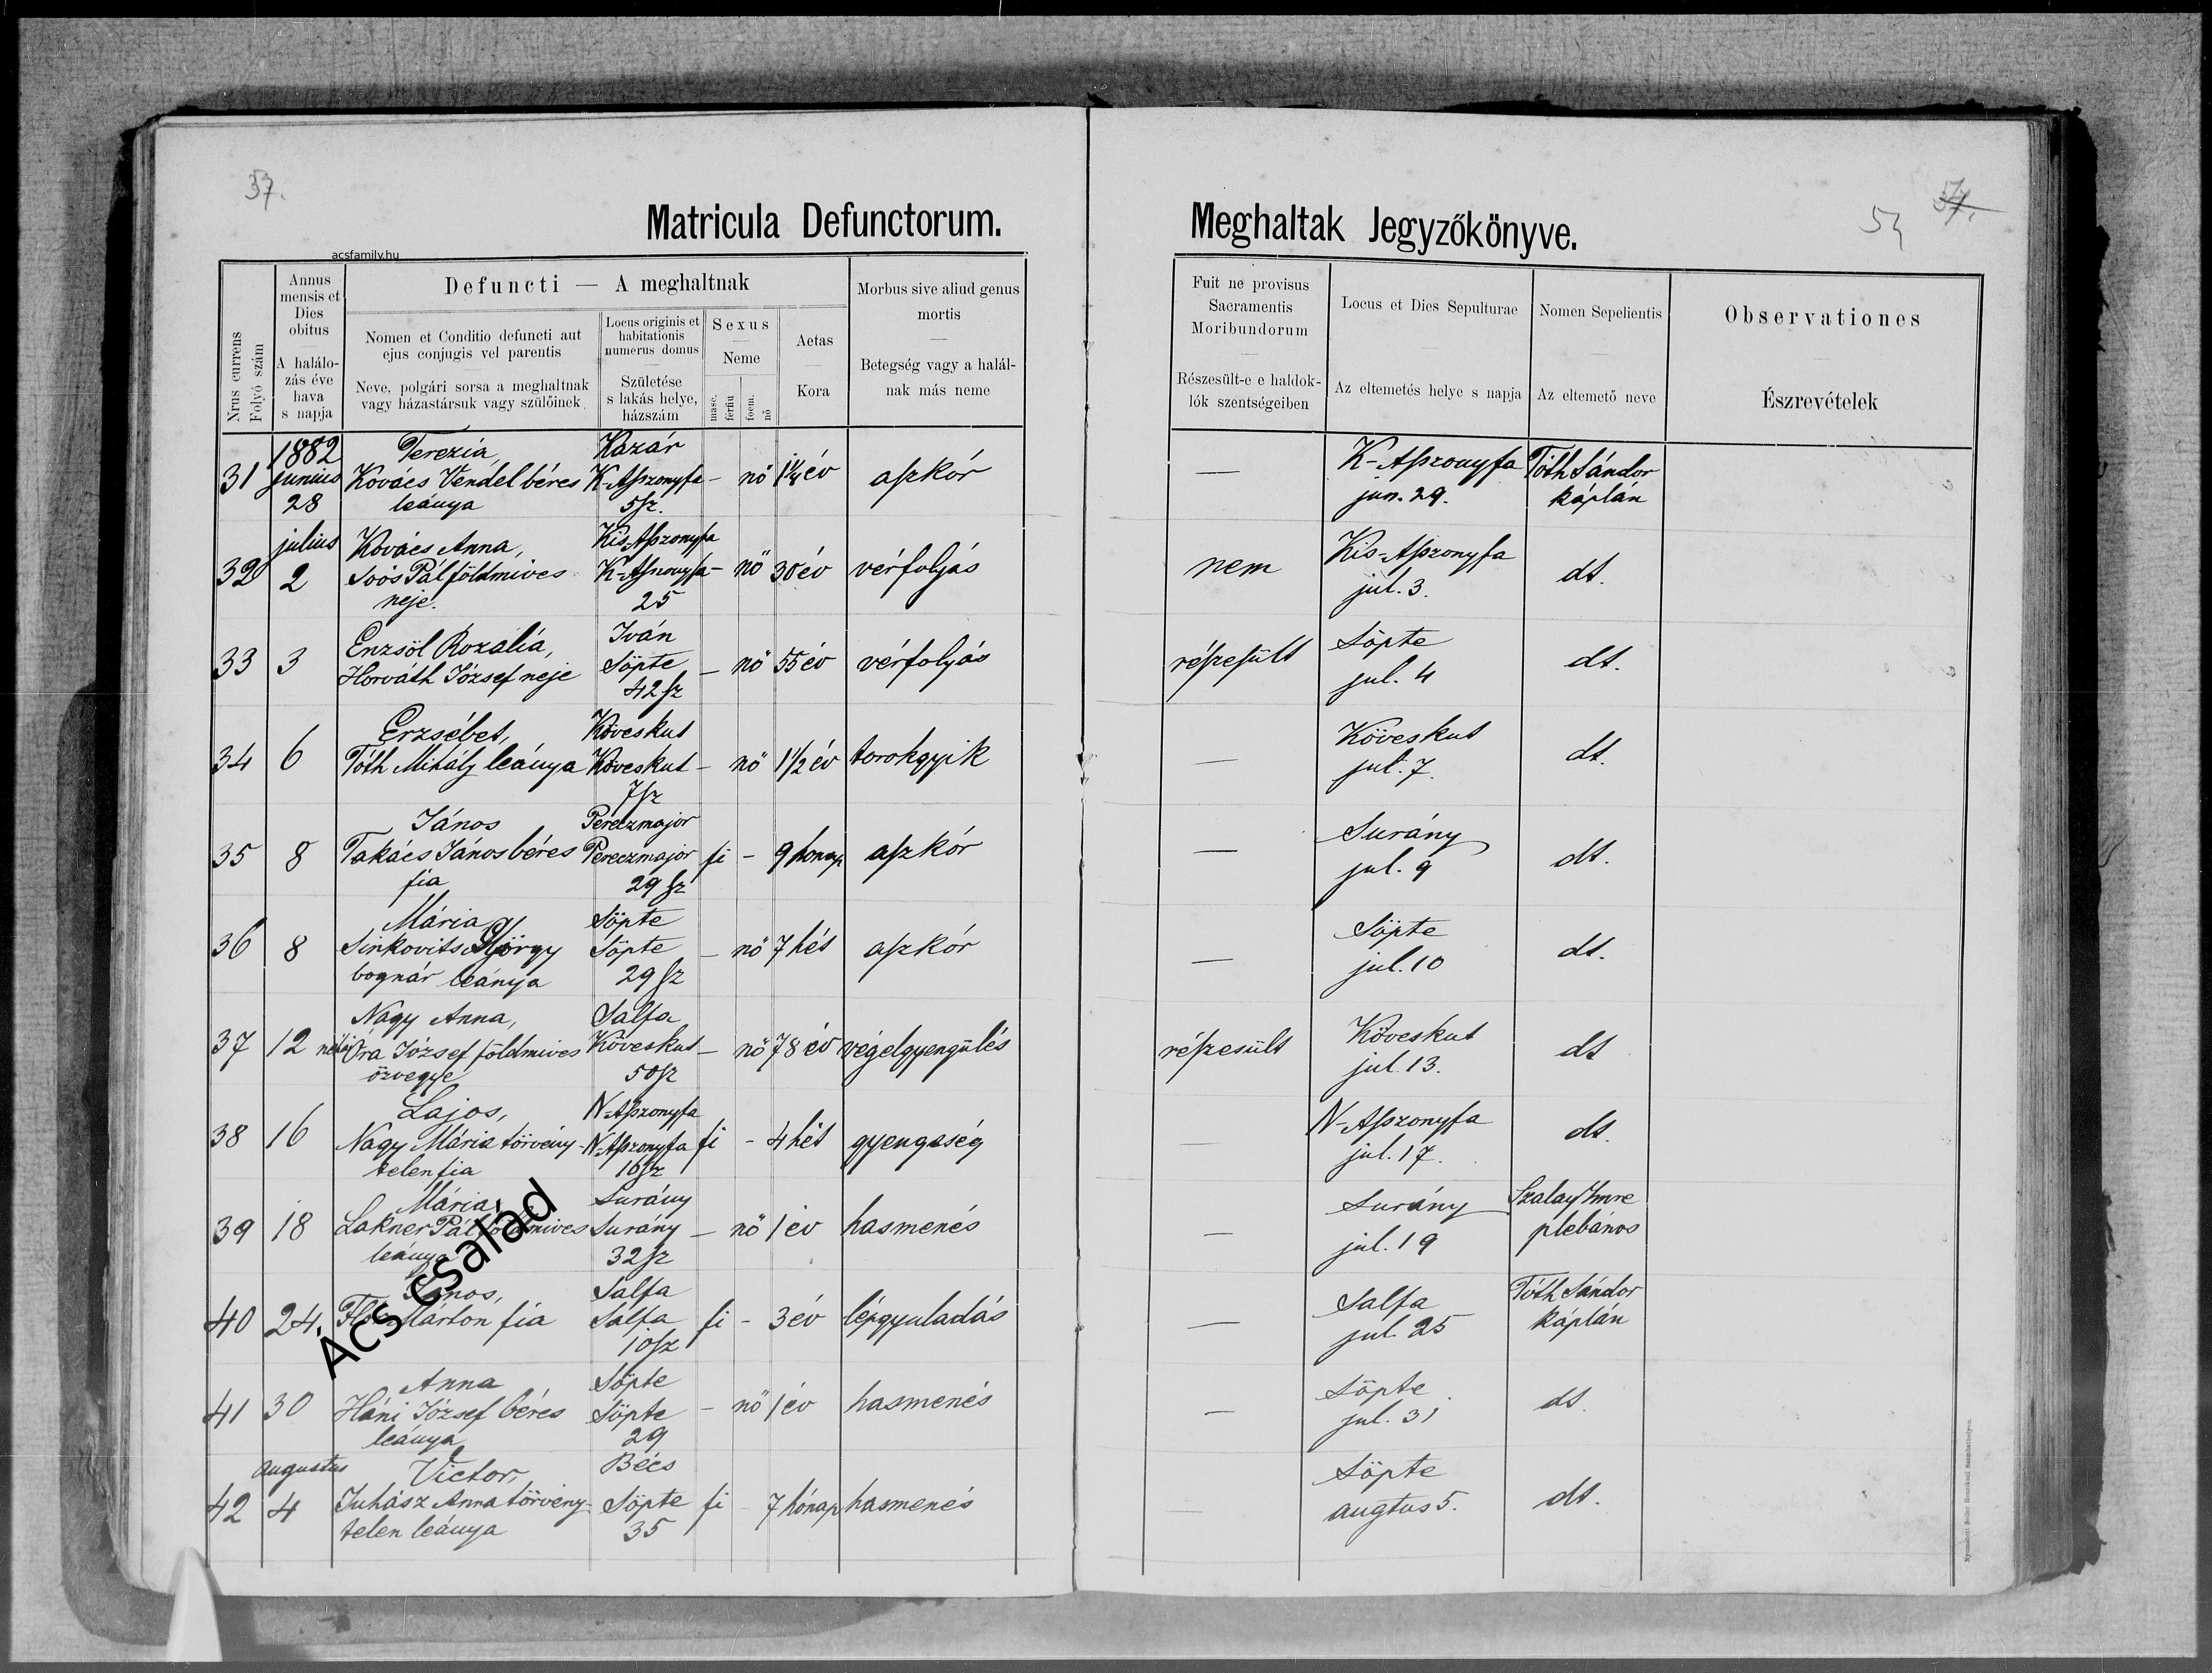 37.
Matricula Defunctorum.
Meghaltak Jegyzőkönyve.
54
57.
acsfamily.hu
Nrus currens
Folyó szám
Annus
mensis et
Dies
obitus
A halálo-
zás éve
hava
s napja
Defuncti — A meghaltnak
Nomen et Conditio defuncti aut
ejus conjugis vel parentis
Neve, polgári sorsa a meghaltnak
vagy házastársuk vagy szülőinek
Locus originis et
habitationis
numerus domus
Születése
s lakás helye,
házszám
Sexus
Neme
masc.
férfiu
foem.
nő
Aetas
Kora
Morbus sive aliud genus
mortis
Betegség vagy a halál-
nak más neme
Fuit ne provisus
Sacramentis
Moribundorum
Részesült-e e haldok-
lók szentségeiben
Locus et Dies Sepulturae
Az eltemetés helye s napja
Nomen Sepelientis
Az eltemető neve
Observationes
Észrevételek
1882 Terezia, Kazár
31 junius Kovács Vendel béres K-Aſszonyfa – nő 1¼ év aſzkór — K-Aſszonyfa Tóth Sándor
28 leánya 5 ſz. jun. 29. káplán
julius Kovács Anna, Kis-Aſszonyfa
32 2 Soós Pál földmives K-Aſszonyfa – nő 30 év vérfolyás nem Kis-Aſszonyfa dt.
neje. 25 jul. 3.
Enzsöl Rozalia, Iván
33 3 Horváth József neje Söpte – nő 55 év vérfolyás réſzesült Söpte dt.
42 ſz jul. 4
Erzsébet, Köveskut
34 6 Tóth Mihály leánya Köveskut – nő 1½ év torokgyik — Köveskut dt.
7 ſz jul. 7.
János Pereczmajor
35 8 Takács János béres Pereczmajor fi – 9 honap aſzkór — Surány dt.
fia 29 ſz jul. 9
Mária, Söpte
36 8 Sinkovits György Söpte – nő 7 hét aſzkór — Söpte dt.
bognár leánya 29 ſz jul. 10
Nagy Anna, Salfa
37 12 Óra József földmives Köveskut – nő 78 év végelgyengülés réſzesült Köveskut dt
özvegye 50 ſz jul. 13.
Lajos, N-Aſszonyfa
38 16 Nagy Mária törvény- N-Aſszonyfa fi – 4 hét gyengeség — N-Aſszonyfa dt.
telen fia 16 ſz jul. 17.
Mária, Surány
39 18 Lakner Pál földmives Surány – nő 1 év hasmenés — Surány Szalay Imre
leánya 32 ſz jul. 19 plebános
János, Salfa
40 24. Márton fia Salfa fi – 3 év lépgyuladás — Salfa Tóth Sándor
10 ſz jul. 25 káplán
Anna Söpte
41 30 Háni József béres Söpte – nő 1 év hasmenés — Söpte dt.
leánya 29 jul. 31
augustus Victor, Bécs
42 4 Juhász Anna törvény- Söpte fi – 7 hónap hasmenés — Söpte dt.
telen leánya 35 augtus 5.
Ács család